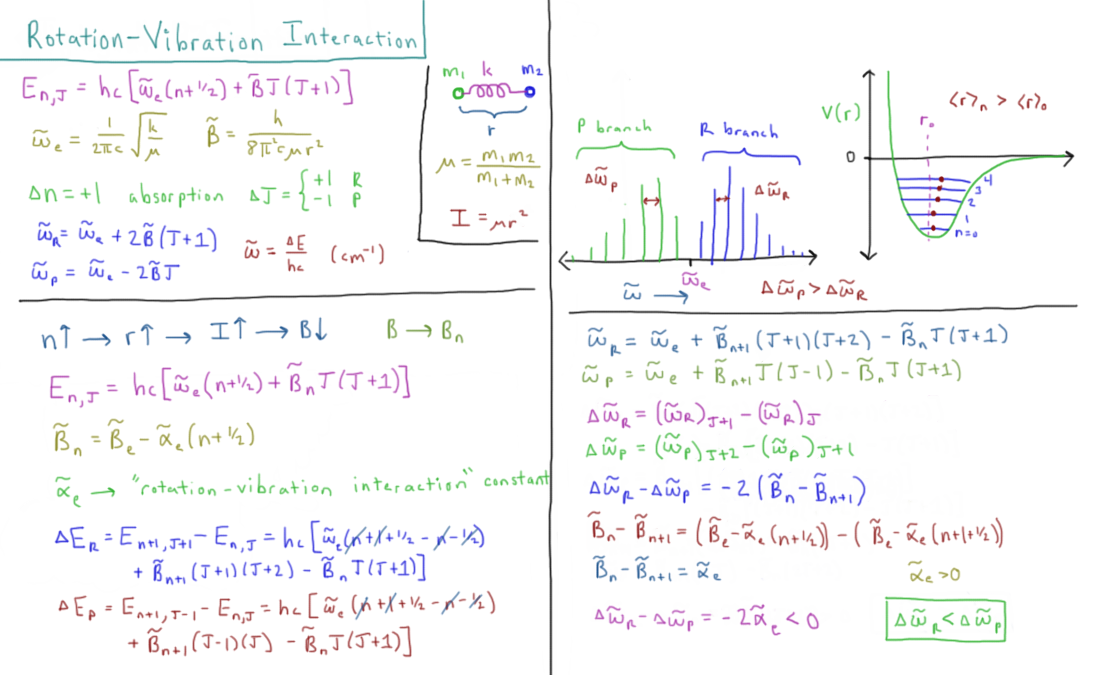 Rotation-Vibration Interaction
E_{n,J} = hc[ω̃_e(n+1/2) + B̃J(J+1)]
ω̃_e = 1/(2πc) √(k/μ)   B̃ = h/(8π²cμr²)
Δn = +1 absorption ΔJ = { +1 R
-1 P
ω̃_R = ω̃_e + 2B̃(J+1)
ω̃_P = ω̃_e - 2B̃J
ω̃ = ΔE/hc (cm⁻¹)
m₁ k m₂
r
μ = m₁m₂/(m₁+m₂)
I = μr²
P branch
R branch
Δω̃_P
Δω̃_R
ω̃_e
ω̃ →
Δω̃_P > Δω̃_R
V(r)
⟨r⟩_n > ⟨r⟩₀
r₀
0
4
3
2
1
n=0
n↑ → r↑ → I↑ → B↓   B → B_n
E_{n,J} = hc[ω̃_e(n+1/2) + B̃_nJ(J+1)]
B̃_n = B̃_e - α̃_e(n+1/2)
α̃_e → "rotation-vibration interaction" constant
ΔE_R = E_{n+1,J+1} - E_{n,J} = hc[ω̃_e(n+1+1/2-n-1/2)
+ B̃_{n+1}(J+1)(J+2) - B̃_nJ(J+1)]
ΔE_P = E_{n+1,J-1} - E_{n,J} = hc[ω̃_e(n+1+1/2-n-1/2)
+ B̃_{n+1}(J-1)(J) - B̃_nJ(J+1)]
ω̃_R = ω̃_e + B̃_{n+1}(J+1)(J+2) - B̃_nJ(J+1)
ω̃_P = ω̃_e + B̃_{n+1}J(J-1) - B̃_nJ(J+1)
Δω̃_R = (ω̃_R)_{J+1} - (ω̃_R)_J
Δω̃_P = (ω̃_P)_{J+2} - (ω̃_P)_{J+1}
Δω̃_R - Δω̃_P = -2(B̃_n - B̃_{n+1})
B̃_n - B̃_{n+1} = (B̃_e - α̃_e(n+1/2)) - (B̃_e - α̃_e(n+1+1/2))
B̃_n - B̃_{n+1} = α̃_e   α̃_e > 0
Δω̃_R - Δω̃_P = -2α̃_e < 0
Δω̃_R < Δω̃_P